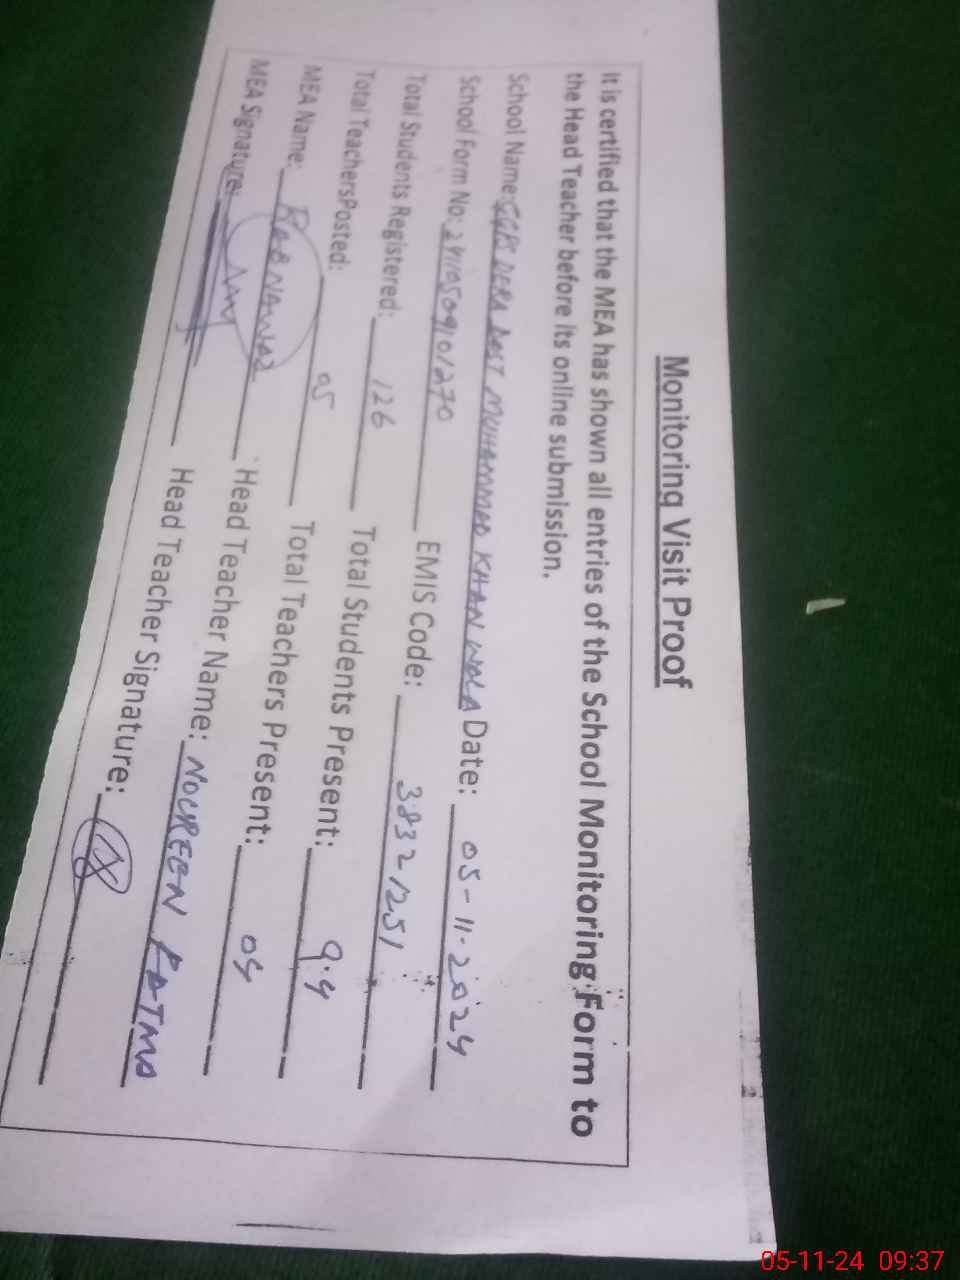 Monitoring Visit Proof
It is certified that the MEA has shown all entries of the School Monitoring Form to
the Head Teacher before its online submission.
School Name: GGPS DERA DOST MUHAMMED KHAN WALA Date: 05-11-2024
School Form No: 24110509101270 EMIS Code: 38321251
Total Students Registered: 126 Total Students Present: 94
Total TeachersPosted: 05 Total Teachers Present: 04
MEA Name: RAB NAWAZ Head Teacher Name: NOUREEN FATMA
MEA Signature: Head Teacher Signature:
05-11-24 09:37